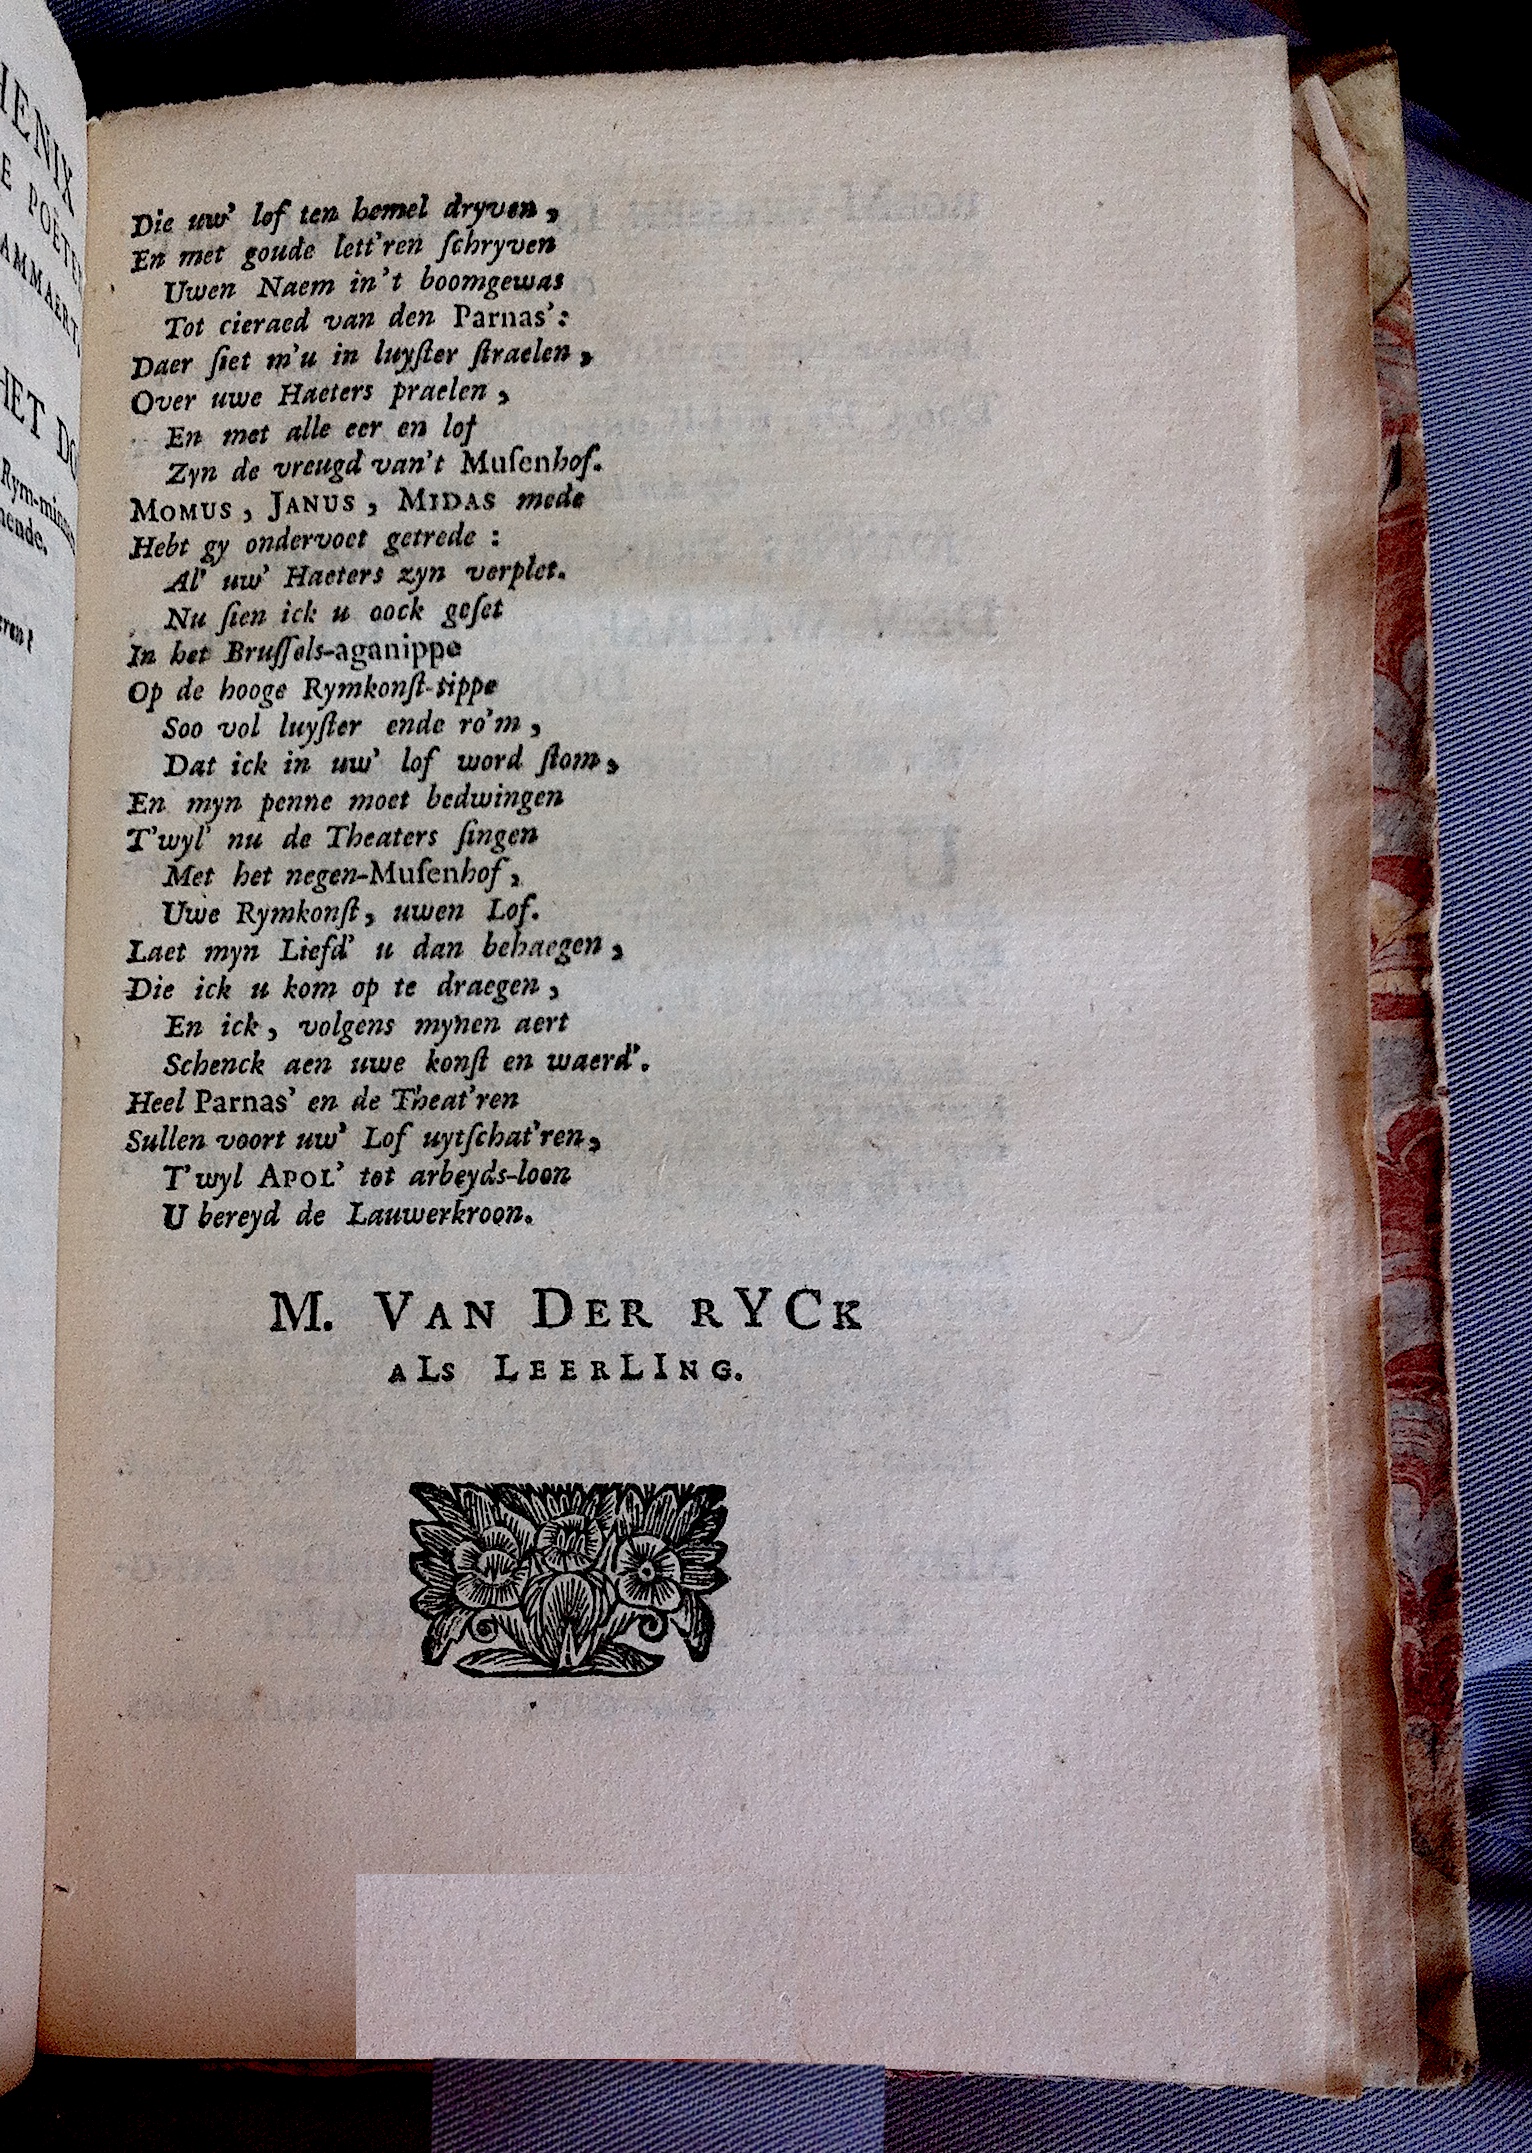 HENIX
E POËTE
AMMAERT,
HET DO
Rym-minn
nende.
eren?
Die uw' lof ten hemel dryven,
En met goude lett'ren ſchryven
Uwen Naem in't boomgewas
Tot cieraed van den Parnas':
Daer ſiet m'u in luyſter ſtraelen,
Over uwe Haeters praelen,
En met alle eer en lof
Zyn de vreugd van't Muſenhof.
MOMUS, JANUS, MIDAS mede
Hebt gy ondervoet getrede:
Al' uw' Haeters zyn verplet.
Nu ſien ick u oock geſet
In het Bruſſels-aganippe
Op de hooge Rymkonſt-tippe
Soo vol luyſter ende ro'm,
Dat ick in uw' lof word ſtom,
En myn penne moet bedwingen
T'wyl' nu de Theaters ſingen
Met het negen-Muſenhof,
Uwe Rymkonſt, uwen Lof.
Laet myn Liefd' u dan behaegen,
Die ick u kom op te draegen,
En ick, volgens mynen aert
Schenck aen uwe konſt en waerd'.
Heel Parnas' en de Theat'ren
Sullen voort uw' Lof uytſchat'ren,
T'wyl APOL' tot arbeyds-loon
U bereyd de Lauwerkroon.
M. VAN DER RYCK
ALS LEERLING.